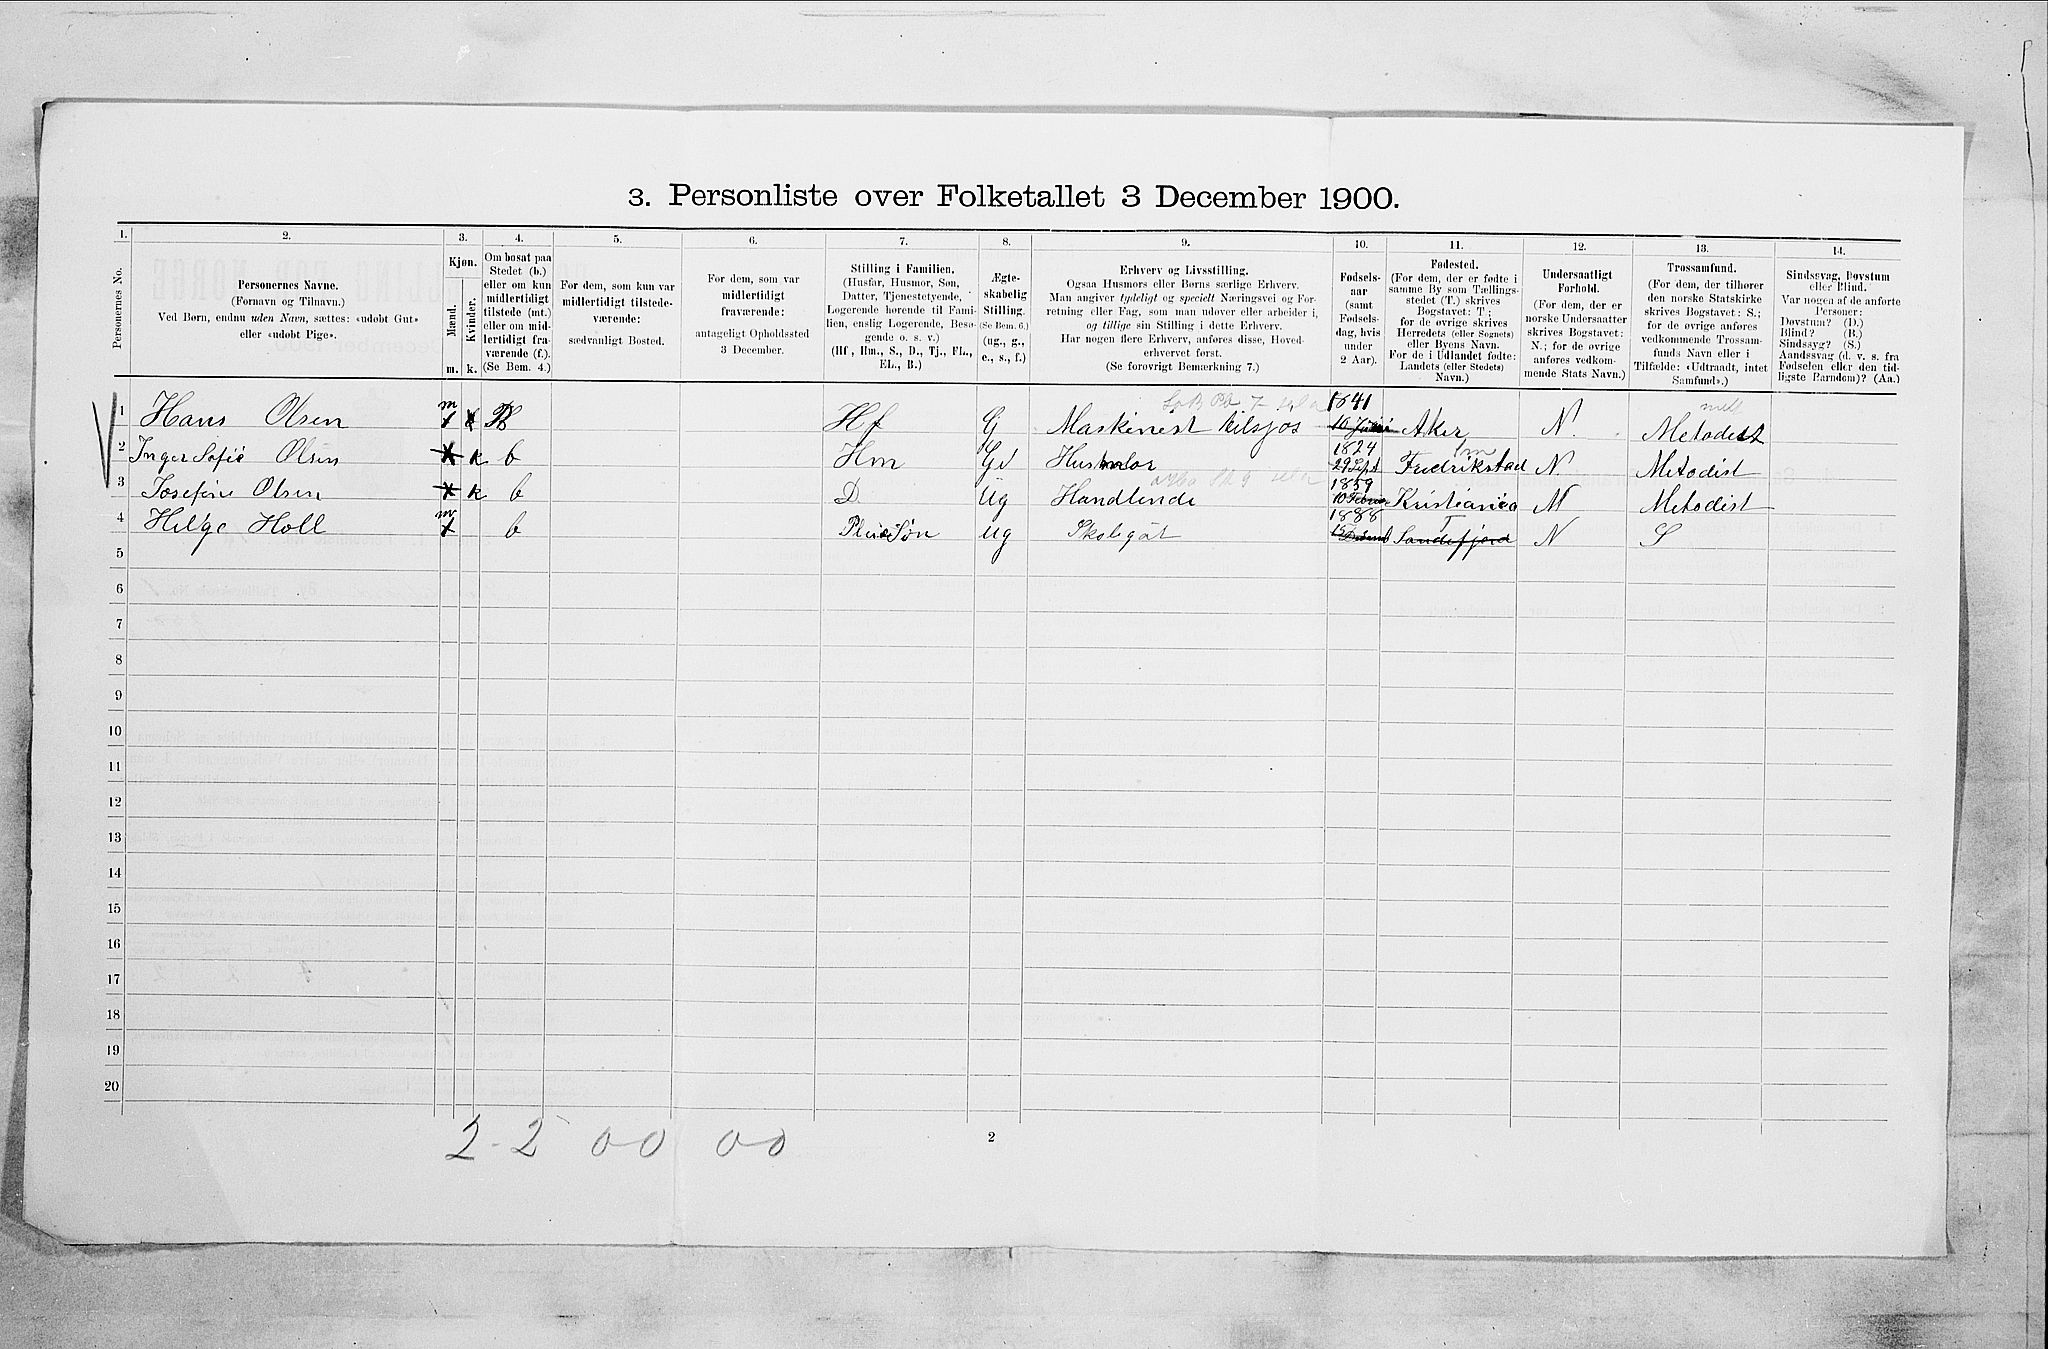 3. Personliste over Folketallet 3 December 1900.
1. 2. 3. 4. 5. 6. 7. 8. 9. 10. 11. 12. 13. 14.
Personernes No.
Personernes Navne.
(Fornavn og Tilnavn.)
Ved Børn, endnu uden Navn, sættes: «udøbt Gut»
eller «udøbt Pige».
Kjøn.
Mænd.
Kvinder.
m. k.
Om bosat paa
Stedet (b.)
eller om kun
midlertidigt
tilstede (mt.)
eller om mid-
lertidigt fra-
værende (f.).
(Se Bem. 4.)
For dem, som kun var
midlertidigt tilstede-
værende:
sædvanligt Bosted.
For dem, som var
midlertidigt
fraværende:
antageligt Opholdssted
3 December.
Stilling i Familien.
(Husfar, Husmor, Søn,
Datter, Tjenestetyende,
Logerende hørende til Fami-
lien, enslig Logerende, Besø-
gende o. s. v.)
(Hf, Hm., S., D., Tj., FL.,
EL., B.)
Ægte-
skabelig
Stilling.
(Se Bem. 6.)
(ug., g.,
e., s., f.)
Erhverv og Livsstilling.
Ogsaa Husmors eller Børns særlige Erhverv.
Man angiver tydeligt og specielt Næringsvei og For-
retning eller Fag, som man udøver eller arbeider i,
og tillige sin Stilling i dette Erhverv.
Har nogen flere Erhverv, anføres disse, Hoved-
erhvervet først.
(Se forøvrigt Bemærkning 7.)
Fødsels-
aar
(samt
Fødsels-
dag, hvis
under
2 Aar).
Fødested.
(For dem, der er fødte i
samme By som Tællings-
stedet (T.) skrives
Bogstavet: T;
for de øvrige skrives
Herredets (eller Sognets)
eller Byens Navn.
For de i Udlandet fødte:
Landets (eller Stedets)
Navn.)
Undersaatligt
Forhold.
(For dem, der er
norske Undersaatter
skrives Bogstavet:
N.; for de øvrige
anføres vedkom-
mende Stats Navn.)
Trossamfund.
(For dem, der tilhører
den norske Statskirke
skrives Bogstavet: S.;
for de øvrige anføres
vedkommende Trossam-
funds Navn eller i
Tilfælde: «Udtraadt, intet
Samfund».)
Sindssvag, Døvstum
eller Blind.
Var nogen af de anførte
Personer:
Døvstum? (D.)
Blind? (B.)
Sindssyg? (S.)
Aandssvag (d. v. s. fra
Fødselen eller den tid-
ligste Barndom)? (Aa.)
1 Hans Olsen m Hf G Maskinest 1841 Aker N. Metodist
2 Inger Sofie Olsen k b Hm G Husmor 1824 29 Sept Fredrikstad N Metodist
3 Josefine Olsen k b D Ug Handlende 1859 Kristiania N Metodist
4 Helge Holl m b PleieSøn ug Skolegut 1888 T Sandefjord N S
5
6
7
8
9
10
11
12
13
14
15
16
17
18
19
20
2-2 0-0 0-0
2